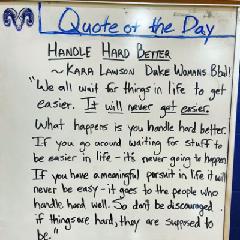 Quote of the Day
HANDLE HARD BETTER
~ KARA LAWSON Duke Womans BBall
"We all wait for things in life to get
easier. It will never get easier.
What happens is you handle hard better.
If you go around waiting for stuff to
be easier in life - it's never going to happen
If you have a meaningful pursuit in life it will
never be easy - it goes to the people who
handle hard well. So don't be discouraged
if things are hard, they are supposed to
be."